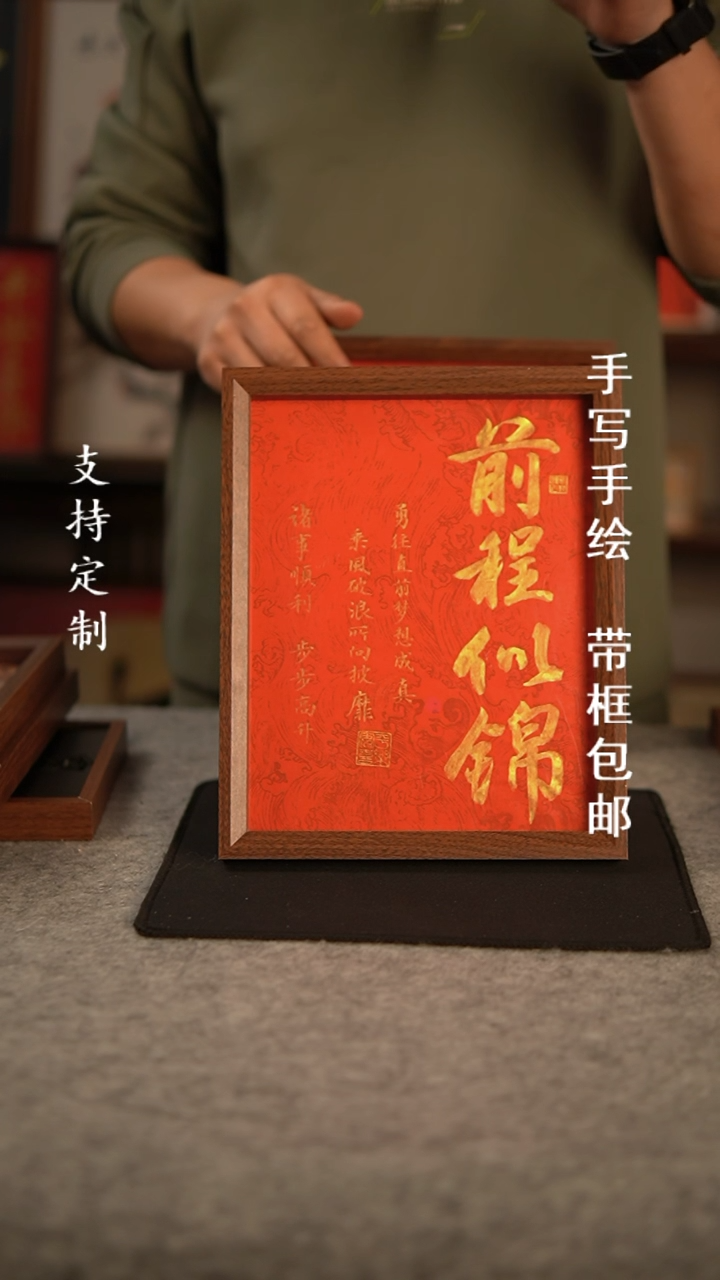 手写手绘 带框包邮
前程似锦
勇往直前梦想成真
乘风破浪所向披靡
诸事顺利 步步高升
支持定制